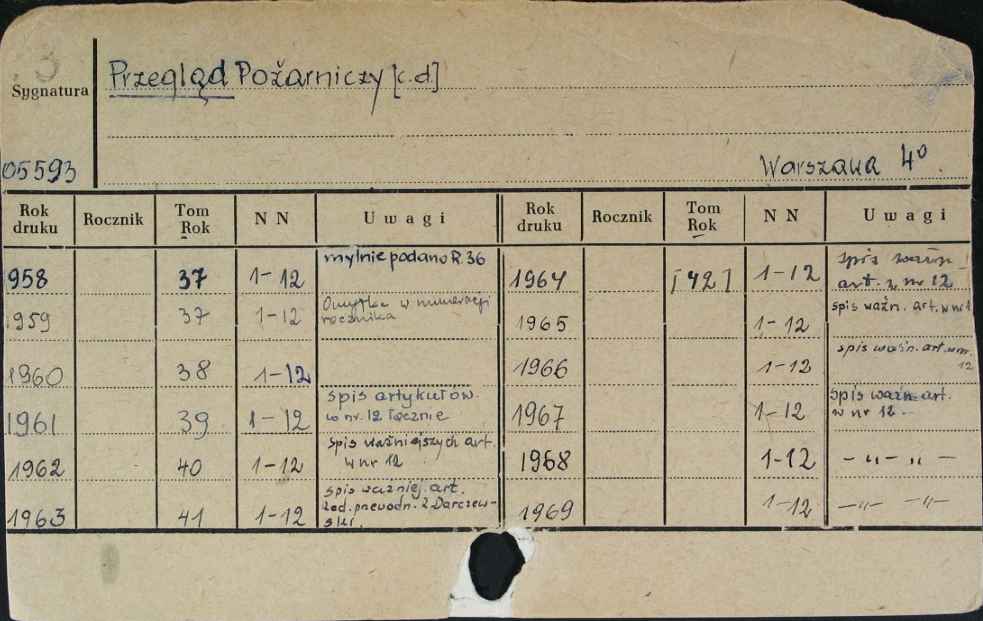 Sygnatura
Przegląd Pożarniczy [c.d]
05593
Warszawa 4°
Rok druku Rocznik Tom Rok NN Uwagi Rok druku Rocznik Tom Rok NN Uwagi
958 37 1-12 mylnie podano R. 36
1959 37 1-12 Omyłka w numeracji
rocznika
1960 38 1-12
1961 39 1-12 spis artykułów
w nr. 12 łącznie
1962 40 1-12 spis ważniejszych art.
w nr 12
1963 41 1-12 spis ważniej. art.
Darczew-
ski.
1964 [42] 1-12 spis
art. nr 12
1965 1-12 spis ważn. art. w nr
1966 1-12 spis ważn. art. w nr.
12
1967 1-12 spis ważn. art.
w nr 12.
1968 1-12 - " - " -
1969 1-12 - " - " -